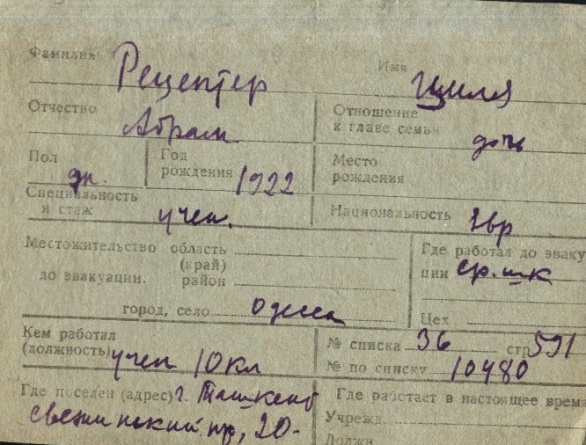 Фамилия Рецептер Имя Циля
Отчество Абрам Отношение
к главе семьи дочь
Пол Год
рождения 1922 Место
рождения
Специальность
и стаж учен. Национальность Евр
Местожительство область
(край)
до эвакуации. район
город, село Одесса
Где работал до эваку
ции ср. шк
Цех
Кем работал
(должность) учен 10 кл
№ списка 36 стр 591
№ по списку 10480
Где поселен (адрес) г. Ташкент
20-
Где работает в настоящее время
Учрежд.
Должн